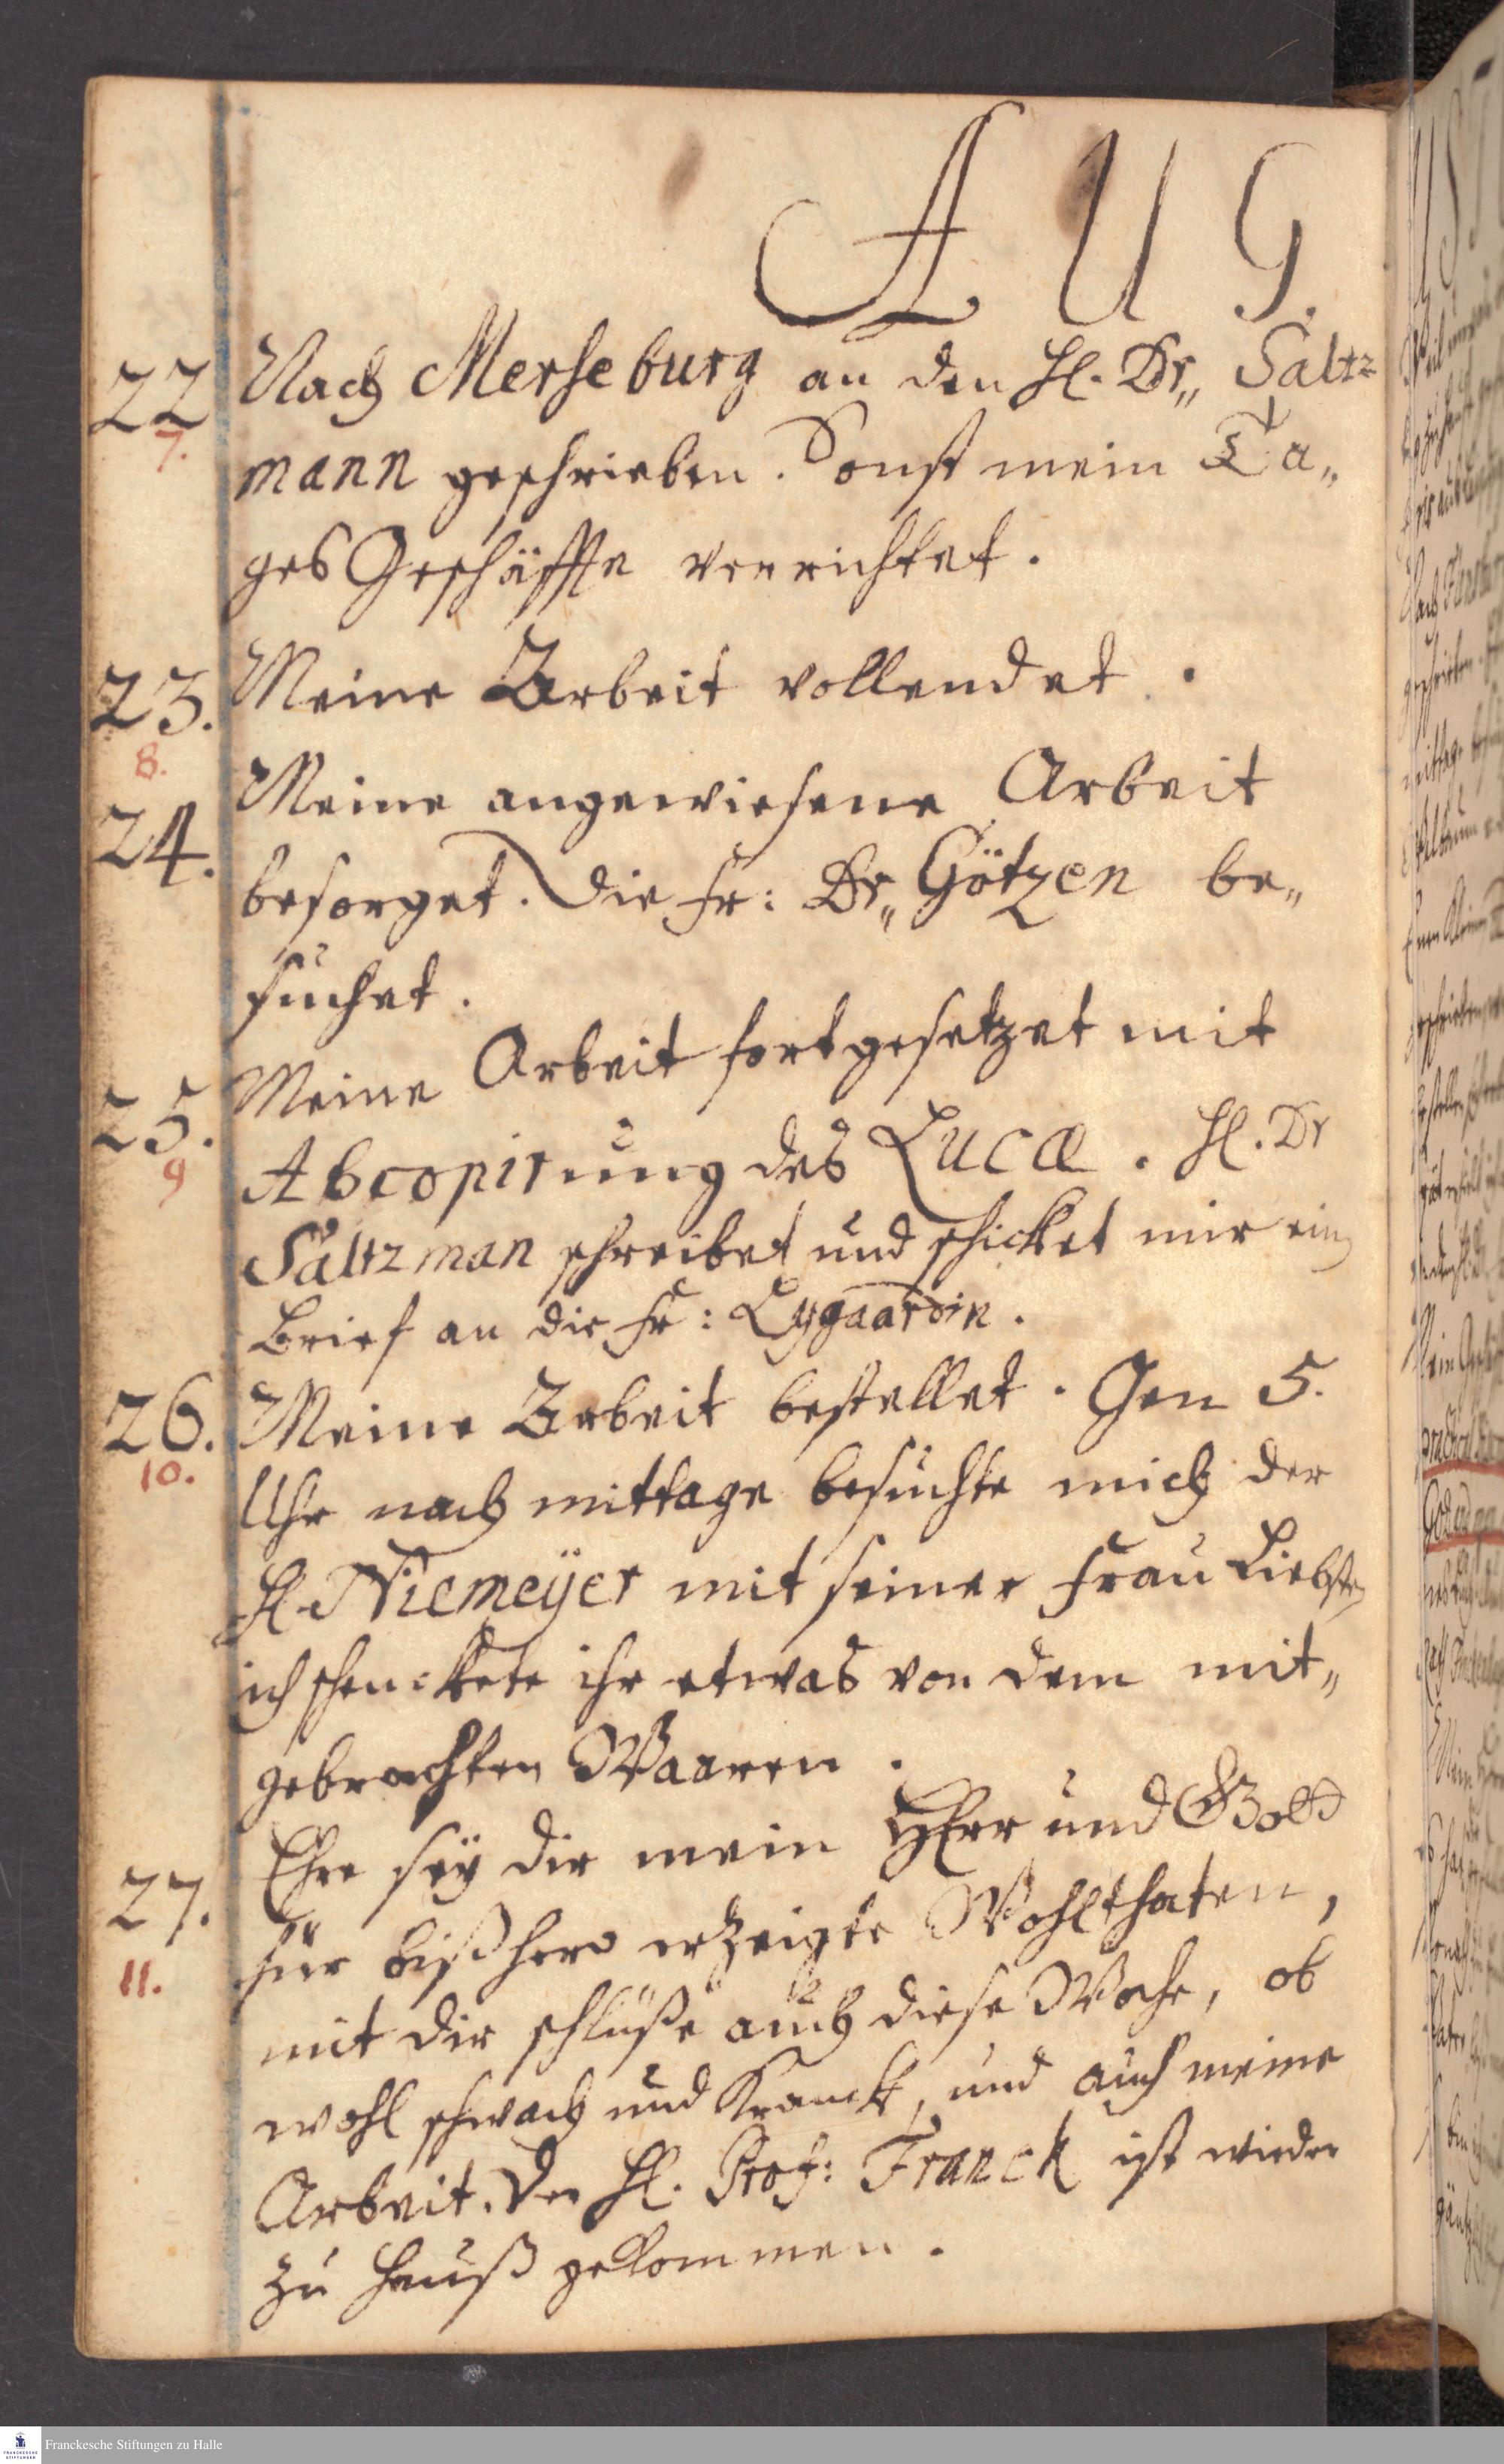 A U G.
22 Nach Merseburg an den H. Dr„ Saltz
7.
mann geschrieben. Sonst mein Ta„
ges Geschäffte verrichtet.
23. Meine Arbeit vollendet.
8.
24. Meine angewiesene Arbeit
besorget. Die Fr: Dr„ Götzen be„
suchet.
25. Meine Arbeit fortgesetzet mit
9
Abcopirung des Lucæ. H. Dr
Saltzman schreibet und schicket mir ein
Brief an die Fr: Lygaardin.
26. Meine Arbeit bestellet. Gen 5.
10.
Uhr nach mittage besuchte mich der
H. Niemeÿer mit seiner Frau Liebsten
ich schenckete ihr etwas von dem mit„
gebrachten Waaren.
27. Ehre seÿ dir mein HErr und GOtt
11.
für bißhero erzeigte Wohlthaten,
mit dir schlüße auch diese Woche, ob
wohl schwach und Kranck, und auch meine
Arbeit. Der H. Prof: Franck ist wieder
zu Hauß gekommen.
Franckesche Stiftungen zu Halle